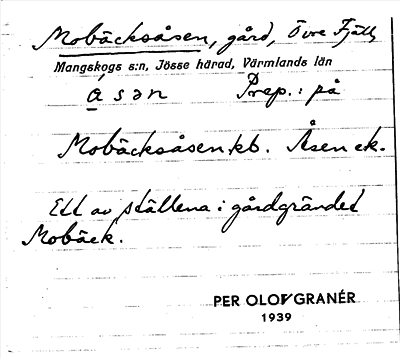 Mobäcksåsen, gård, Övre Fjäll,
Mangskogs s:n, Jösse härad, Värmlands län
å s ə n Prep.: på
Mobäcksåsen kb. Åsen ek.
Ett av ställena i gårdgrändet
Mobäck.
PER OLOV GRANÉR
1939